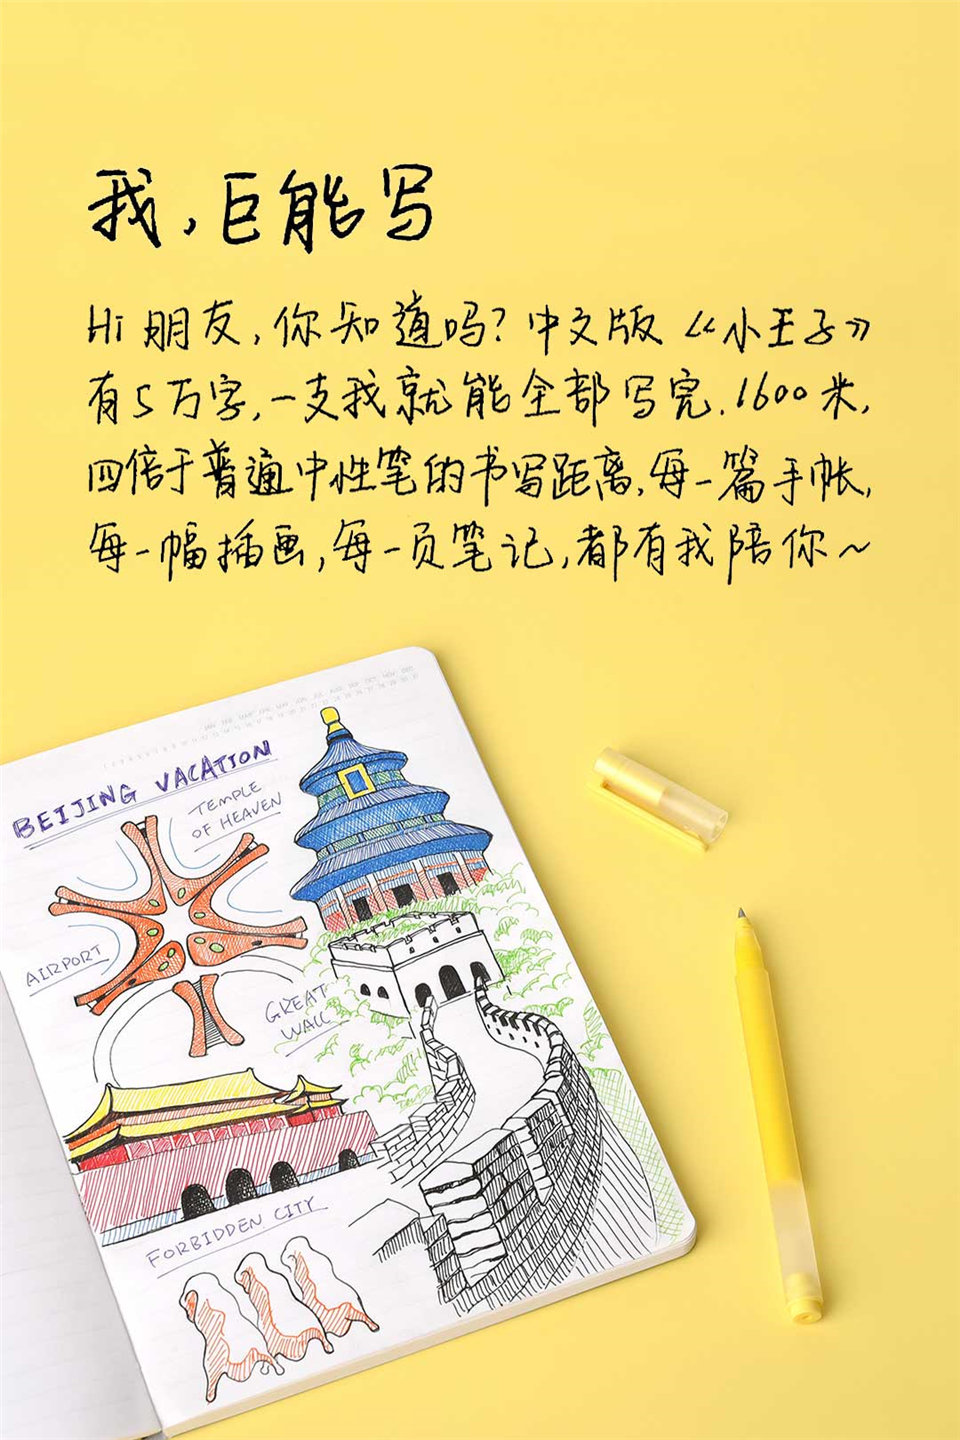 我,巨能写
Hi朋友,你知道吗?中文版《小王子》
有5万字,一支我就能全部写完.1600米,
四倍于普通中性笔的书写距离,每一篇手帐,
每一幅插画,每一页笔记,都有我陪你~
BEIJING VACATION
TEMPLE
OF HEAVEN
AIRPORT
GREAT
WALL
FORBIDDEN CITY